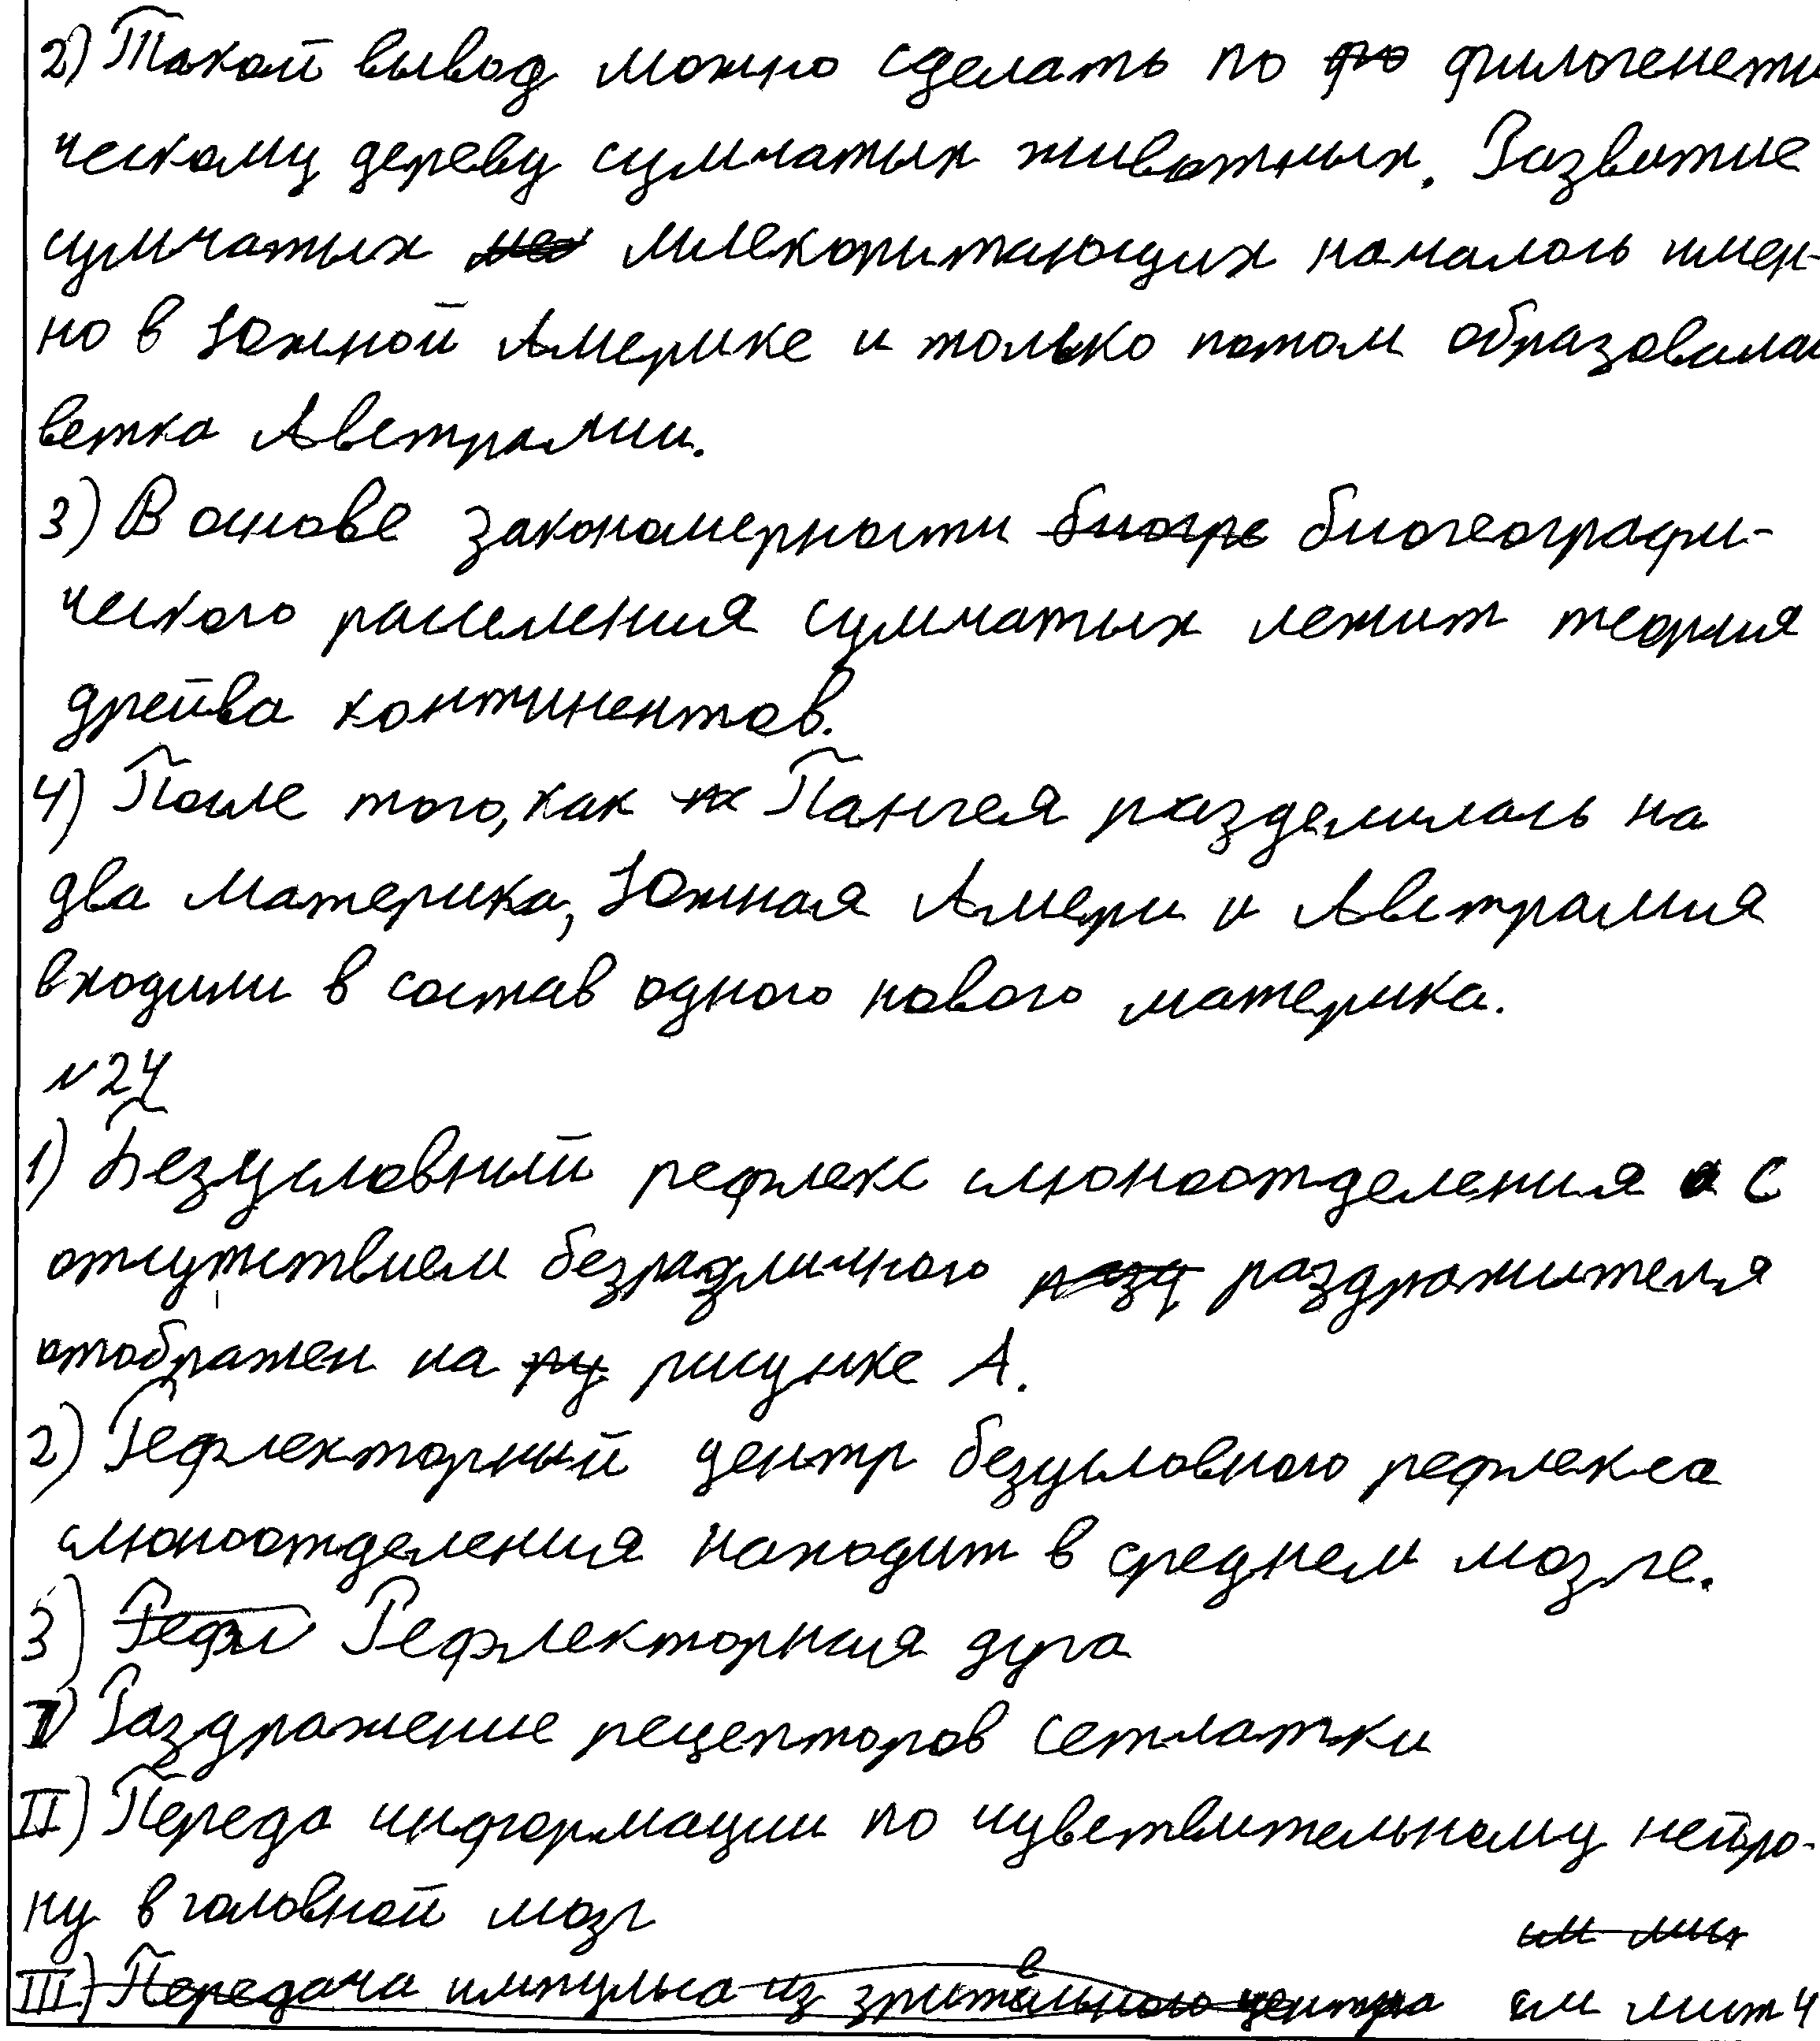 2) Такой вывод можно сделать по фо филогенети
ческому дереву сумчатых животных. Развитие
сумчатых мле млекопитающих началось имен-
но в Южной Америке и только потом образовалас
ветка Австралии.
3) В основе закономерности биогре биогеографи-
ческого расселения сумчатых лежит теория
дрейва континентов.
4) После того, как Пангея разделилась на
два материка, Южная Амери и Австралия
входили в состав одного нового материка.
№24
1) Безусловный рефлекс слюноотделения с
отсутствием безразличного разд раздражителя
отображен на ру рисунке А.
2) Рефлекторный центр безусловного рефлекса
слюноотделения находит в среднем мозге.
3) Рефл Рефлекторная дуга
I) Раздражение рецепторов сетчатки
II) Переда информации по чувствительному нейро-
ну в головной мозг
III) Передача импульса из зрительного центра в см лист 4